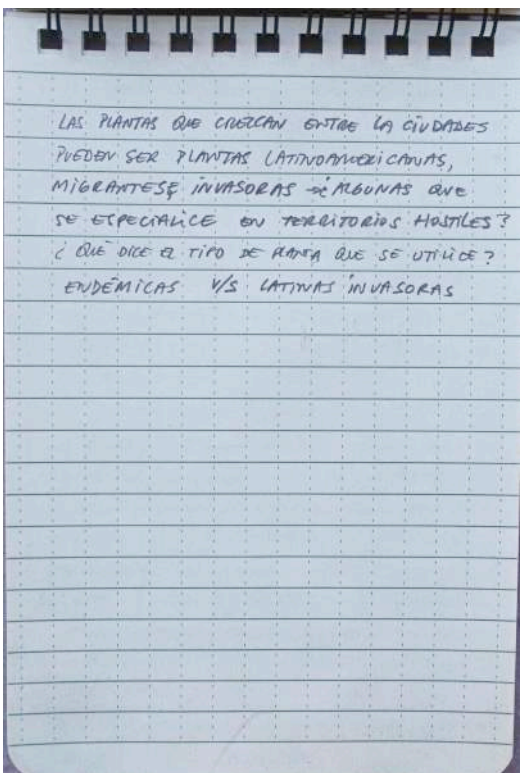 LAS PLANTAS QUE CREZCAN ENTRE LA CIUDADES
PUEDEN SER PLANTAS LATINOAMERICANAS,
MIGRANTES E INVASORAS ALGUNAS QUE
SE ESPECIALICE EN TERRITORIOS HOSTILES?
¿ QUÉ DICE EL TIPO DE PLANTA QUE SE UTILICE?
ENDÉMICAS V/S LATINAS INVASORAS